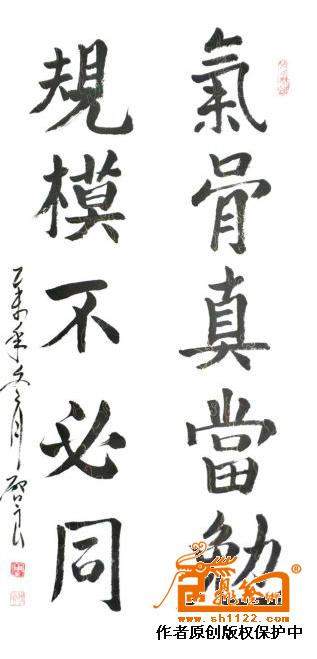 氣骨真當勉
規模不必同
www.sh1122.com
作者原创版权保护中